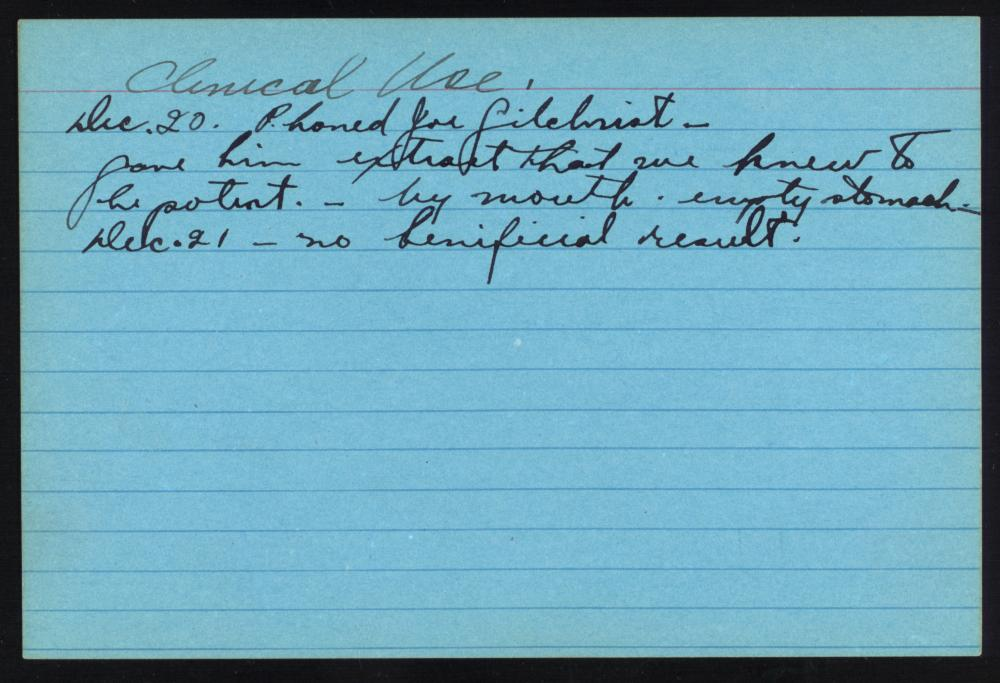 Clinical Use.
Dec. 20. Phoned Joe Gilchrist -
gave him extract that we knew to
be potent. - by mouth. empty stomach -
Dec. 21 - no benificial result.